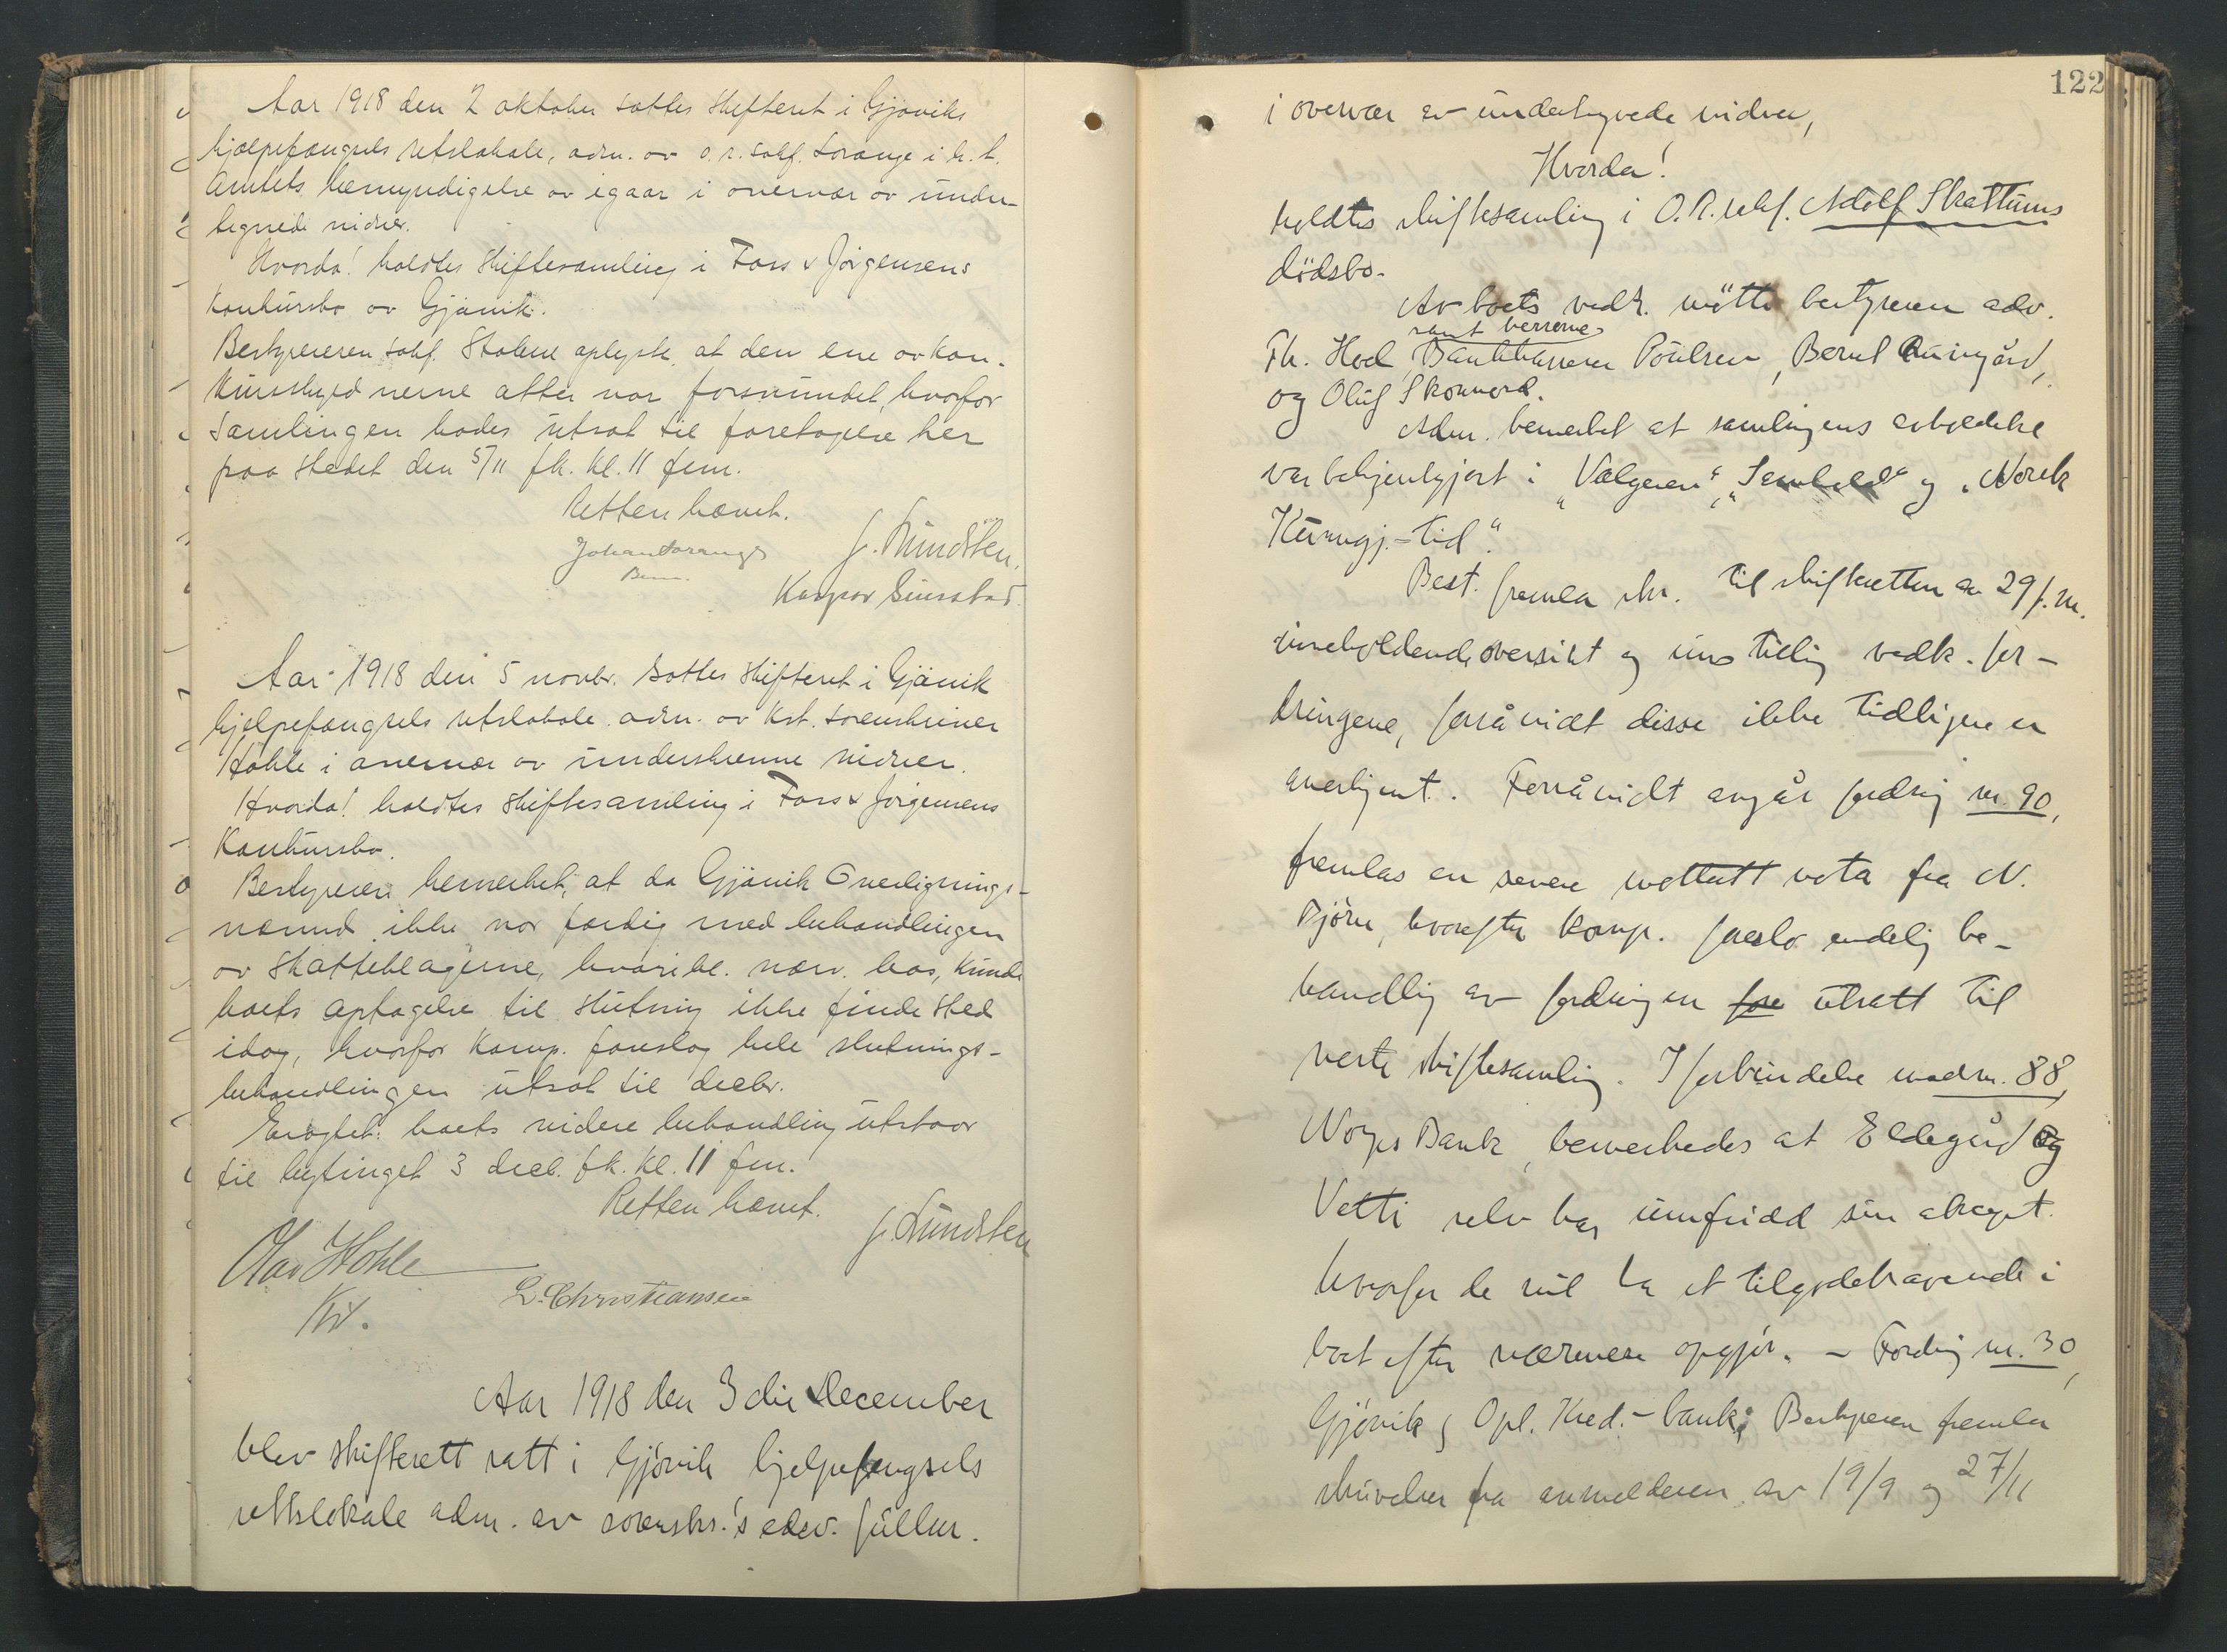 Aar 1918 den 2 oktober sattes skifteret i Gjøviks
hjælpefængsels retslokale, adm. av o.r.sakf. Lorange i h.t.
Amtets bemyndigelse av igaar i overvær av under-
tegnede vidner.
Hvorda! holdtes skiftesamling i Foss & Jørgensens
konkursbo av Gjøvik.
Bestyreren sakf. Skolem oplyste, at den ene av kon-
kursskyldnerne atter var forsvundet, hvorfor
samlingen bødes utsat til foretagelse her
paa stedet den 5/11 fk. kl. 11 fm.
Retten hævet.
Johan Lorange J. Sundsten.
Bem.
Kaspar Simstad.
Aar 1918 den 5 novbr. sattes skifteret i Gjøvik
hjelpefængsels retslokale adm. av kst. sorenskriver
Hohle i overvær av underskrevne vidner.
Hvorda! holdtes skiftesamling i Foss & Jørgensens
konkursbo.
Bestyreren bemerket, at da Gjøvik Overlignings-
nævnd ikke var færdig med behandlingen
av skatteklagerne, hvoribl. nærv. bos, kunde
boets optagelse til slutning ikke finde sted
idag, hvorfor komp. foreslog hele slutnings-
behandlingen utsat til decbr.
Eragtet: boets videre behandling utstaar
til bytinget 3 dec. fk. kl. 11 fm.
Retten hævet.
J. Sundsten
Olav Hohle
Kst.
L. Christiansen
Aar 1918 den 3die December
blev skifterett satt i Gjövik hjelpefengsels
rettslokale adm. av sorenskr.'s edsv. fullm.
122
i overvær av undertegnede vidner,
Hvorda!
holdtes skiftesamling i O.R.sakf. Adolf Skattums
dödsbo.
Av boets vedk. mötte bestyreren adv.
samt herrerne
Th. Hoel, Bankkasserer Poulsen, Bernt
og Oluf Skonnord.
Adm. bemerket at samlingens avholdelse
var bekjentgjort i "Velgeren" "Samhold" og "Norsk
Kunngj.-tid".
Best. fremla skr. til skifteretten av 29/f.m.
inneholdende oversikt og innstilling vedk. for-
dringene, forsåvidt disse ikke tidligere er
anerkjent. Forsåvidt angår fordring nr. 90,
fremlas en senere mottatt nota fra N.
Björn, hvorefter komp. foreslo endelig be-
handling av fordringen fore utsatt til
neste skiftesamling. I forbindelse med nr. 88,
Norges Bank, bemerkedes at Eldegård og
Vetti selv har innfridd sin aksept.
hvorfor de vil ha et tilgodehavende i
boet efter nærmere opgjör. - Fordring nr. 30,
Gjövik og Opl. Kred.-bank: Bestyreren fremla
skrivelser fra anmelderen av 19/9 og 27/11